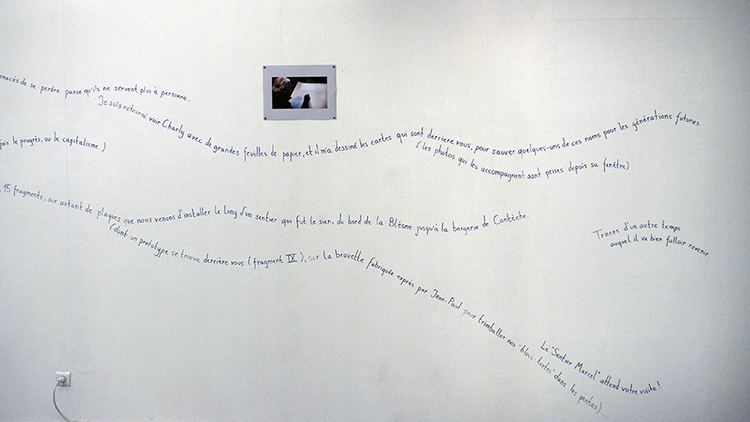 menacés de se perdre parce qu'ils ne servent plus à personne.
Je suis retourné voir Charly avec de grandes feuilles de papier, et il m'a dessiné les cartes qui sont derrière vous, pour sauver quelques-uns de ces noms pour les générations futures.
(les photos qui les accompagnent sont prises depuis sa fenêtre)
le progrès, ou le capitalisme.)
15 fragments, sur autant de plaques que nous venons d'installer le long d'un sentier qui fut le sien, du bord de la Bléone jusqu'à la bergerie de Contèche.
(dont un prototype se trouve derrière vous (fragment IV), sur la brouette fabriquée exprès par Jean-Paul pour trimballer nos "blocs-textes" dans les pentes)
Traces d'un autre temps
auquel il va bien falloir revenir
Le "Sentier Marcel" attend votre visite!